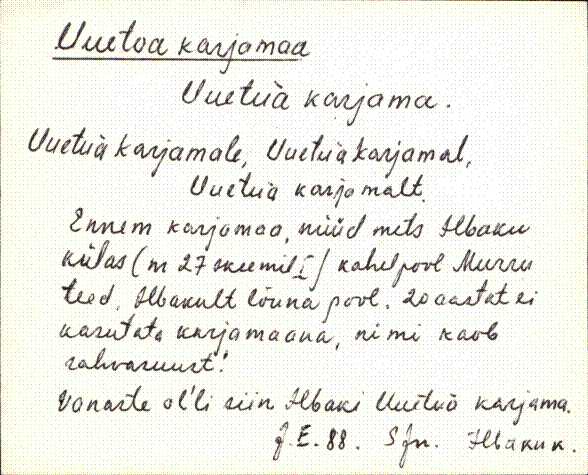 Uuetoa karjamaa
Uuetuà karjama.
Uuetuà karjamale, Uuetuà karjamal,
Uuetuà karjamalt.
Ennem karjamaa, nüüd mets Ilbaku
külas (nr 27 skeemil I) kahelpool Murru
teed, Ilbakult lõuna pool. 20 aastat ei
kasutata karjamaana, nimi kaob
rahvasuust!
Vanaste ol'li siin Ilbaki Uuetuà karjama.
J.E. 88. Sjn. Ilbaku k.